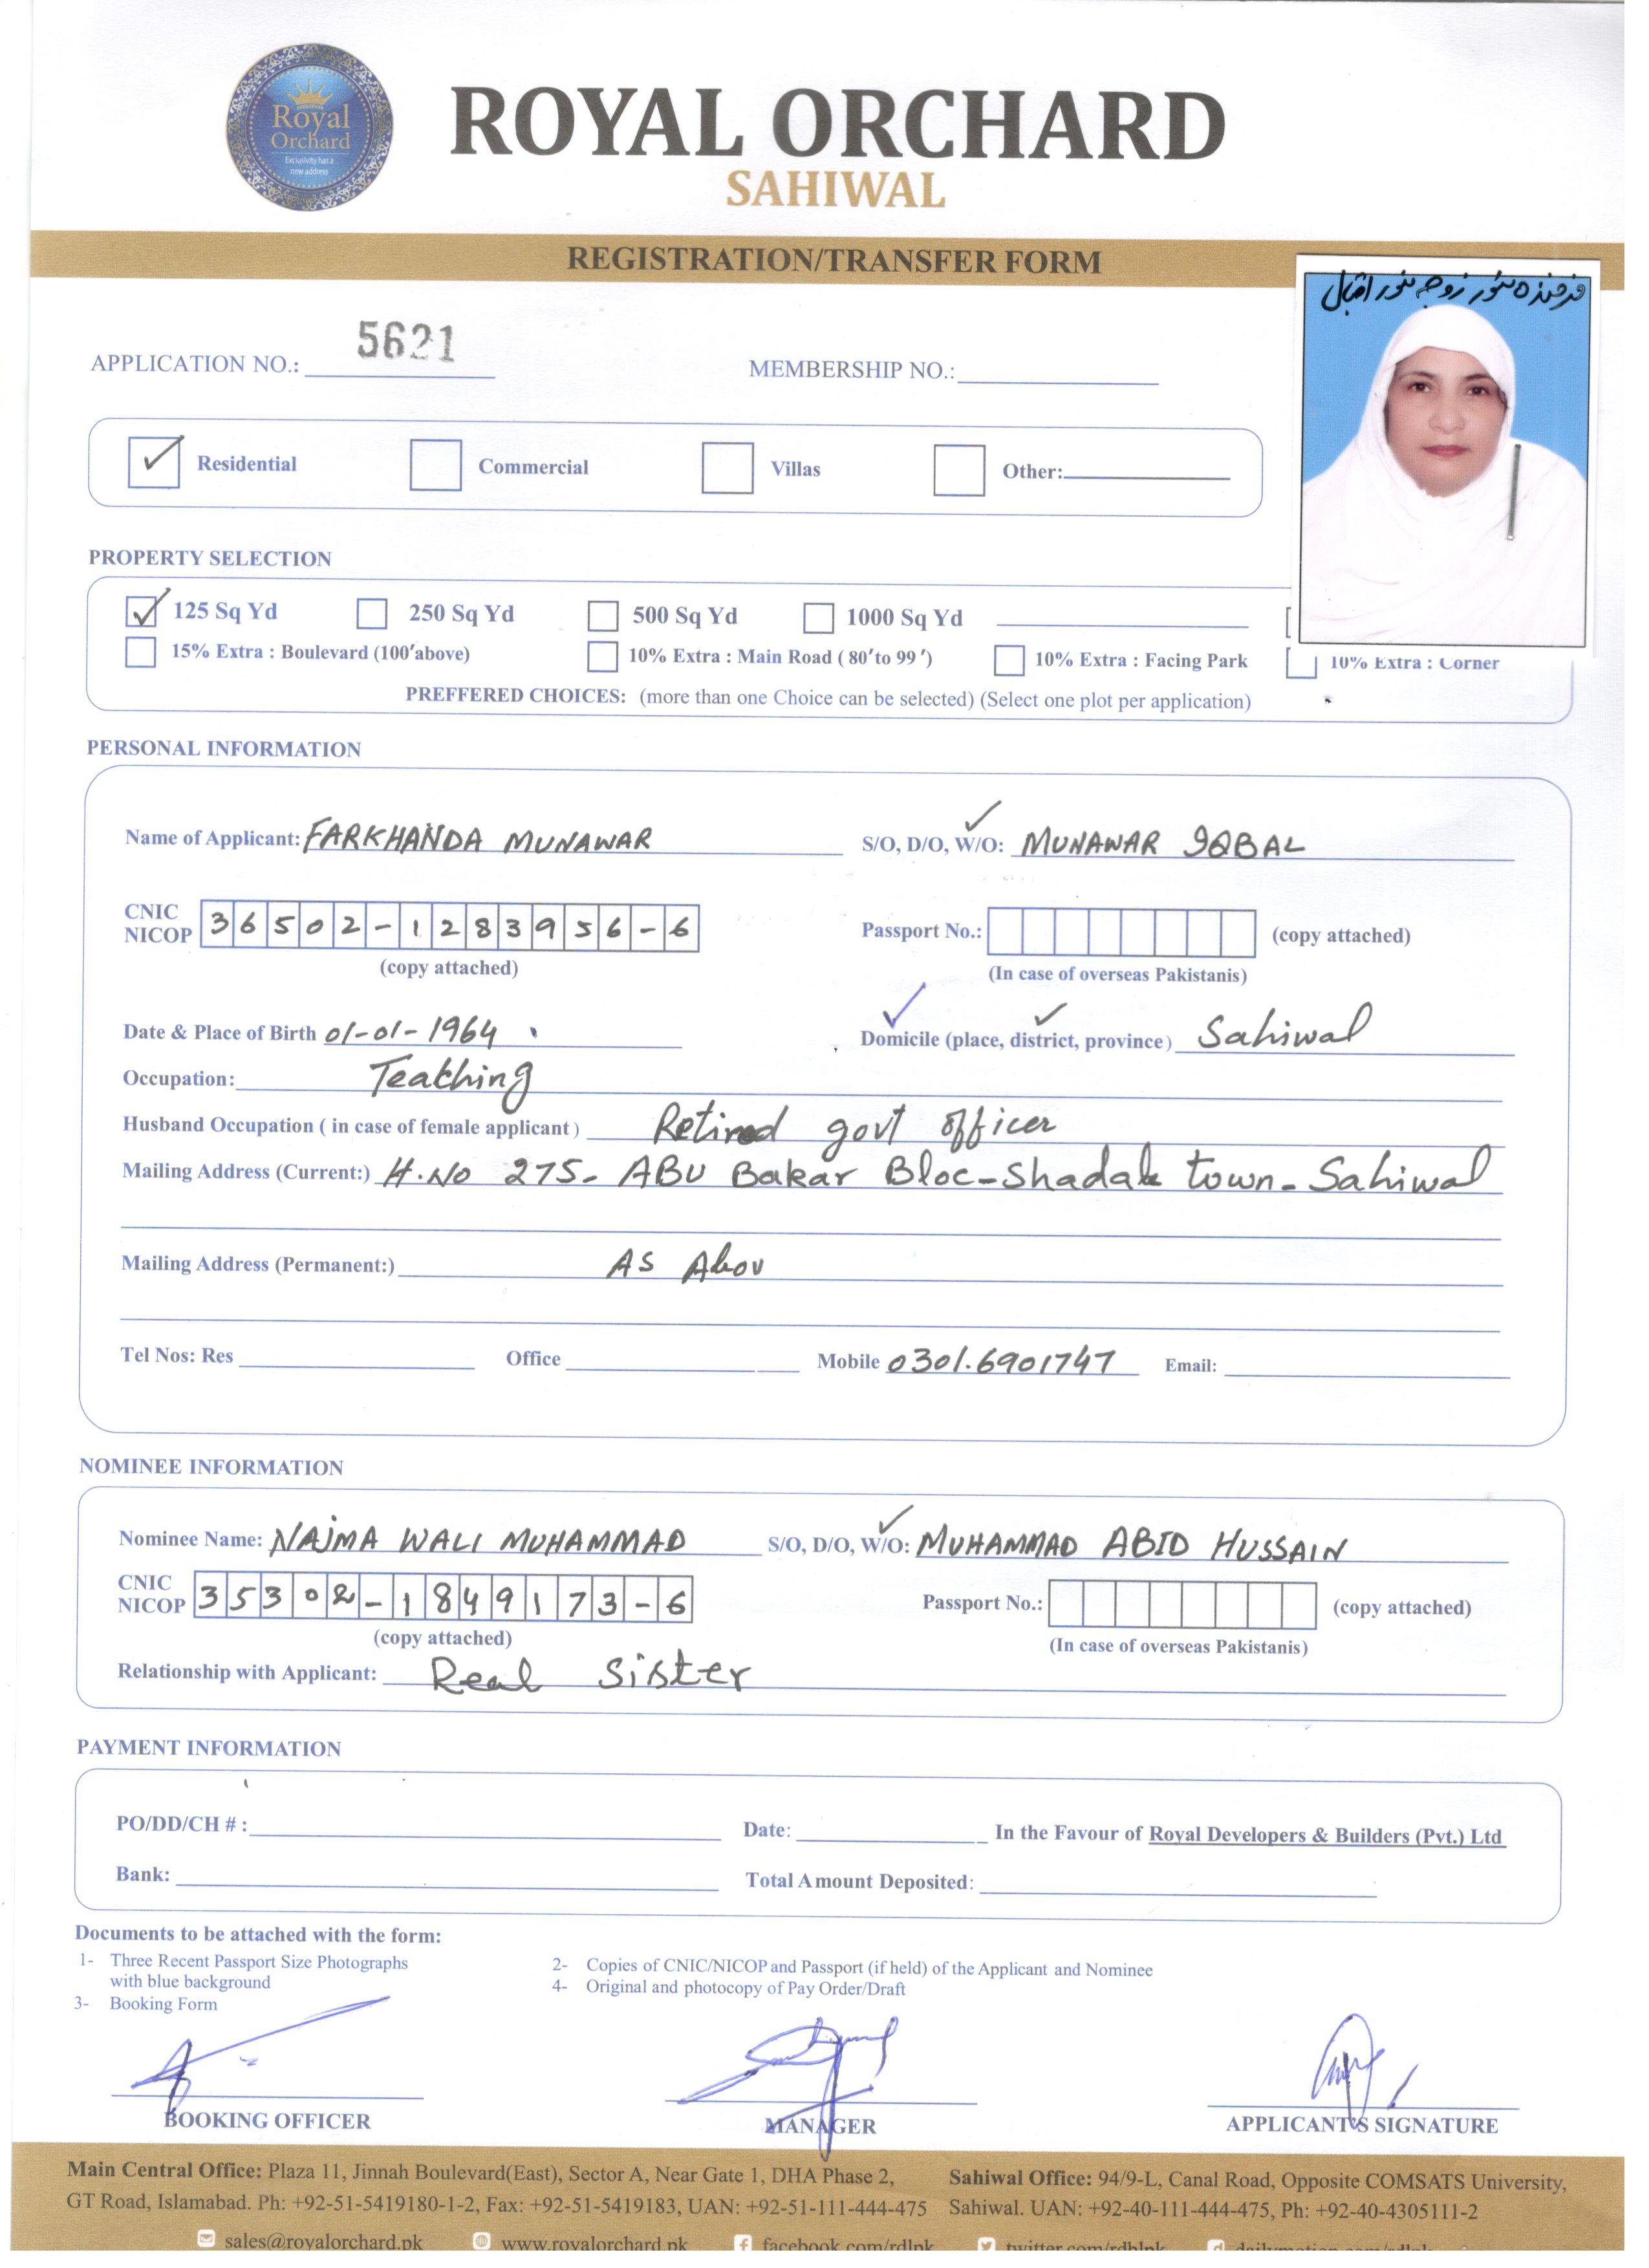 Royal
Orchard
Exclusivity has a
new address
ROYAL ORCHARD
SAHIWAL
REGISTRATION/TRANSFER FORM
فرخندہ منور زوجہ منور اقبال
APPLICATION NO.: 5621
MEMBERSHIP NO.:
Residential
Commercial
Villas
Other:
PROPERTY SELECTION
125 Sq Yd 250 Sq Yd 500 Sq Yd 1000 Sq Yd
15% Extra : Boulevard (100'above) 10% Extra : Main Road ( 80'to 99 ') 10% Extra : Facing Park 10% Extra : Corner
PREFFERED CHOICES: (more than one Choice can be selected) (Select one plot per application)
PERSONAL INFORMATION
Name of Applicant: FARKHANDA MUNAWAR S/O, D/O, W/O: MUNAWAR IQBAL
CNIC
NICOP 36502-1283956-6 Passport No.: (copy attached)
(copy attached) (In case of overseas Pakistanis)
Date & Place of Birth 01-01-1964 Domicile (place, district, province) Sahiwal
Occupation: Teaching
Husband Occupation ( in case of female applicant ) Retired govt officer
Mailing Address (Current:) H.No 275- ABU Bakar Bloc-Shadab town-Sahiwal
Mailing Address (Permanent:) AS Abov
Tel Nos: Res Office Mobile 0301.6901747 Email:
NOMINEE INFORMATION
Nominee Name: NAJMA WALI MUHAMMAD S/O, D/O, W/O: MUHAMMAD ABID HUSSAIN
CNIC
NICOP 35302-1849173-6 Passport No.: (copy attached)
(copy attached) (In case of overseas Pakistanis)
Relationship with Applicant: Real Sister
PAYMENT INFORMATION
PO/DD/CH # : Date: In the Favour of Royal Developers & Builders (Pvt.) Ltd
Bank: Total Amount Deposited:
Documents to be attached with the form:
1- Three Recent Passport Size Photographs
with blue background
2- Copies of CNIC/NICOP and Passport (if held) of the Applicant and Nominee
3- Booking Form
4- Original and photocopy of Pay Order/Draft
BOOKING OFFICER MANAGER APPLICANT'S SIGNATURE
Main Central Office: Plaza 11, Jinnah Boulevard(East), Sector A, Near Gate 1, DHA Phase 2,
GT Road, Islamabad. Ph: +92-51-5419180-1-2, Fax: +92-51-5419183, UAN: +92-51-111-444-475
Sahiwal Office: 94/9-L, Canal Road, Opposite COMSATS University,
Sahiwal. UAN: +92-40-111-444-475, Ph: +92-40-4305111-2
sales@royalorchard.pk www.royalorchard.pk facebook.com/rdlpk twitter.com/rdblpk